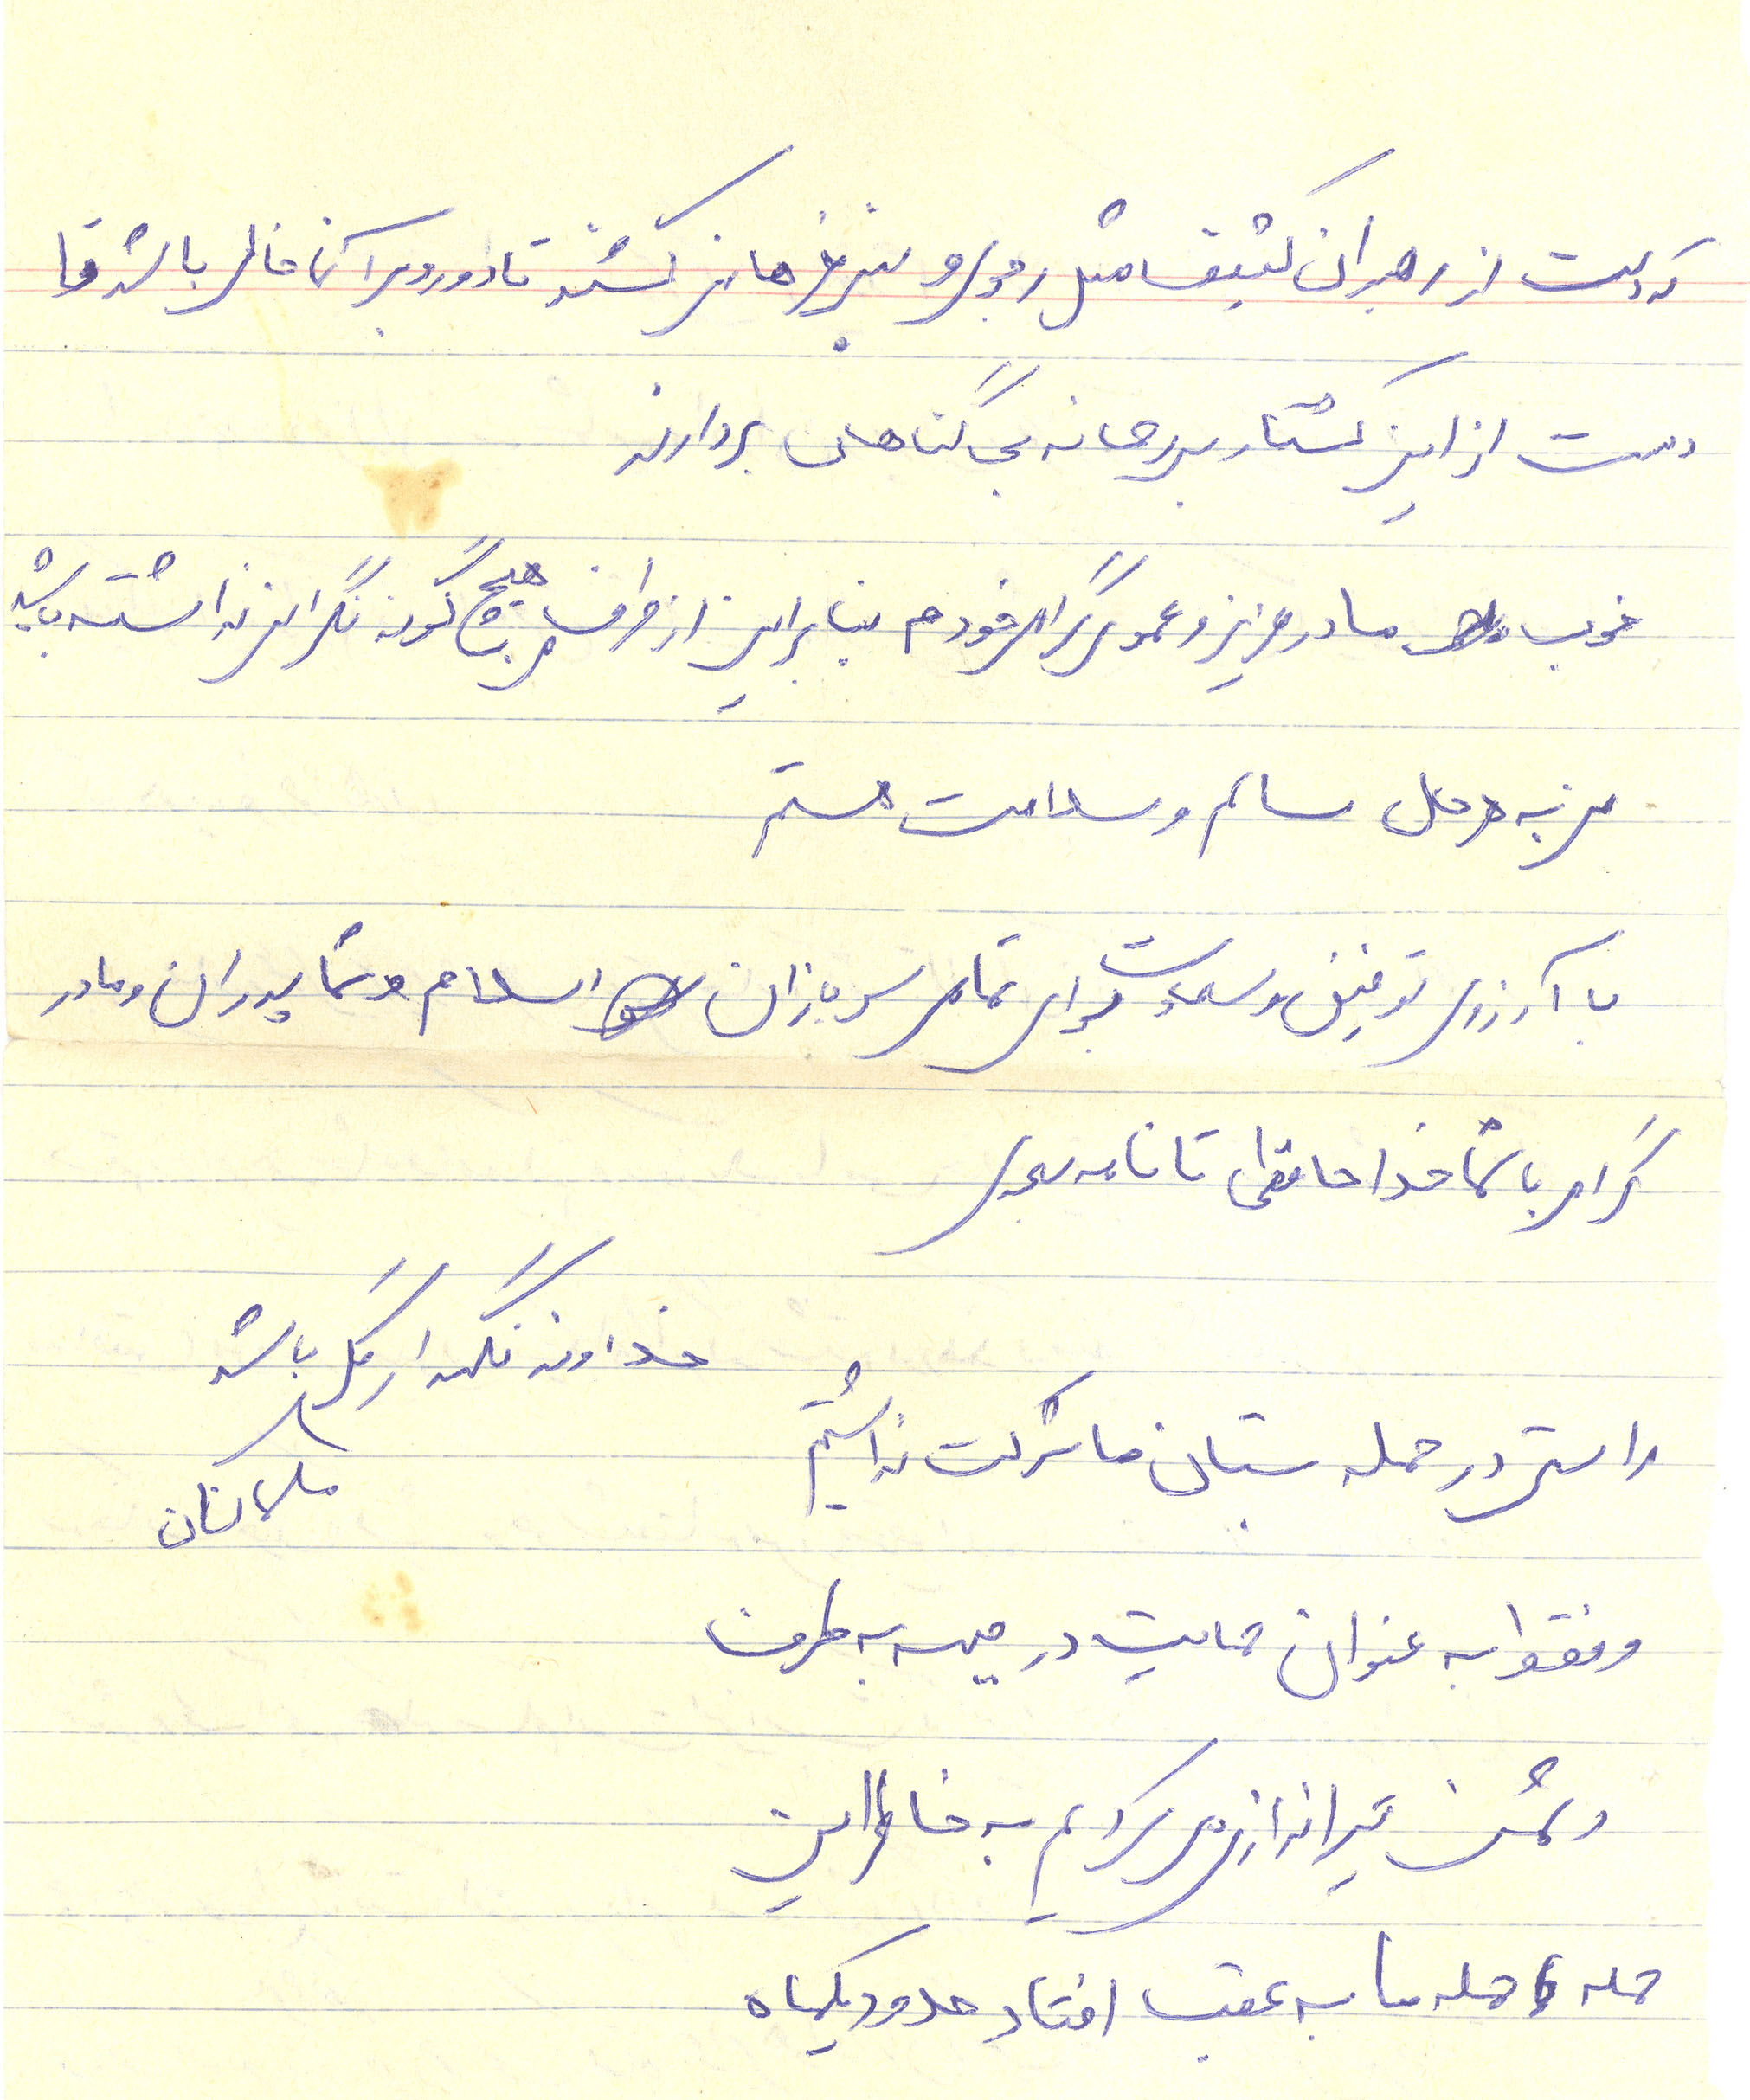 که دست از رهبران کثیف مثل رجوی و بنی صدر ها نمی کشند تا دور و بر آنها خالی باشد و تا
دست از این کشتار بیرحمانه بی گناهان بردارند
خوب مادر عزیز و عموی گرامی خودم بنابراین از طرف من هیچ گونه نگرانی نداشته باشید
من به هر حال سالم و سلامت هستم
با آرزوی توفیق و سعادت برای تمامی سربازان اسلام و شما پدران و مادر
گرامی با شما خداحافظی تا نامه بعدی
خداوند نگهدار همگی باشد
راستی در حمله بستان ما شرکت نداشتیم
و فقط به عنوان حمایت در جبهه به طرف
دشمن تیراندازی می کردیم به خاطر این
حمله حمله ما به عقب افتاد حدود یکماه